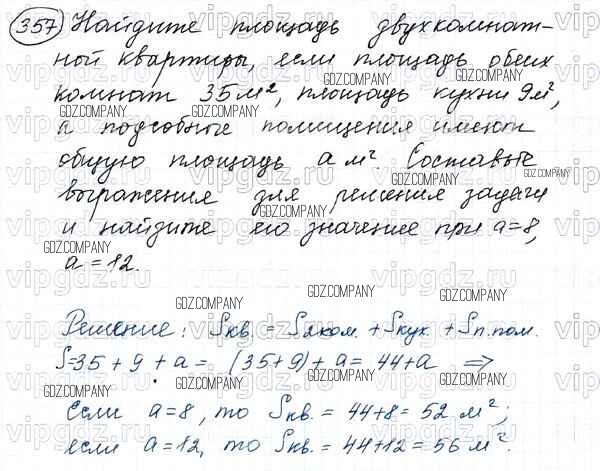 357 Найдите площадь двухкомнат-
ной квартиры, если площадь обеих
комнат 35 м², площадь кухни 9 м²,
а подсобные помещения имеют
общую площадь a м². Составьте
выражение для решения задачи
и найдите его значение при a=8,
a=12.
Решение: Sкв. = S2ком. + Sкух. + Sп.пом.
S=35+9+a= (35+9)+a= 44+a ⇒
Если a=8, то Sкв. = 44+8= 52 м²;
если a=12, то Sкв. = 44+12= 56 м².